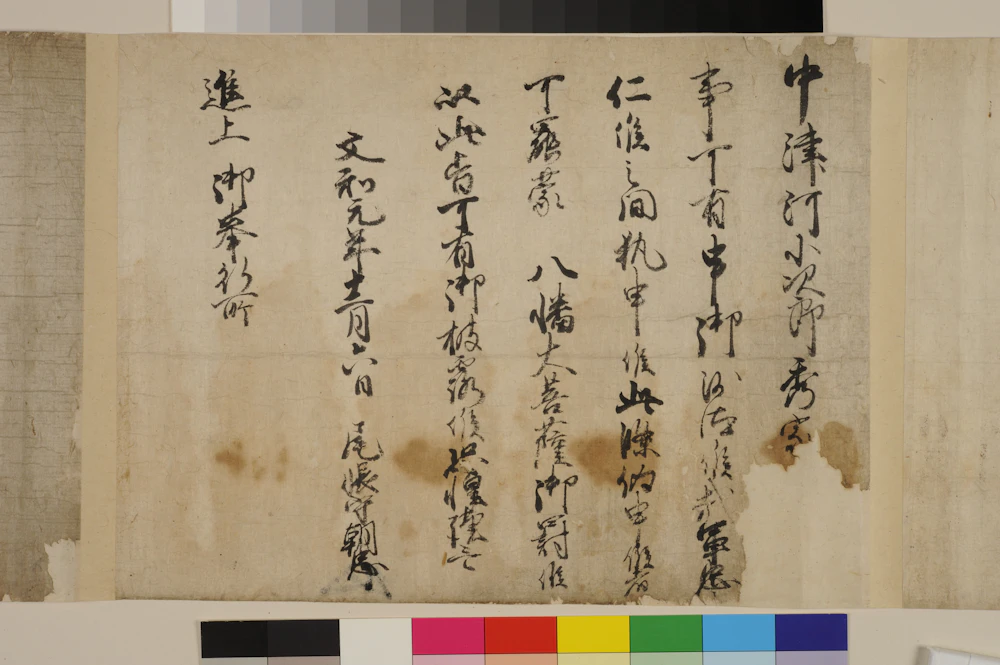 中津河小次郎秀家
事可有申御沙汰候哉軍忠
仁候之間執申候此条偽申候者
可罷蒙 八幡大菩薩御罰候
以此旨可有御披露候恐惶謹言
文和元年十二月六日 尾張守朝忠
進上 御奉行所